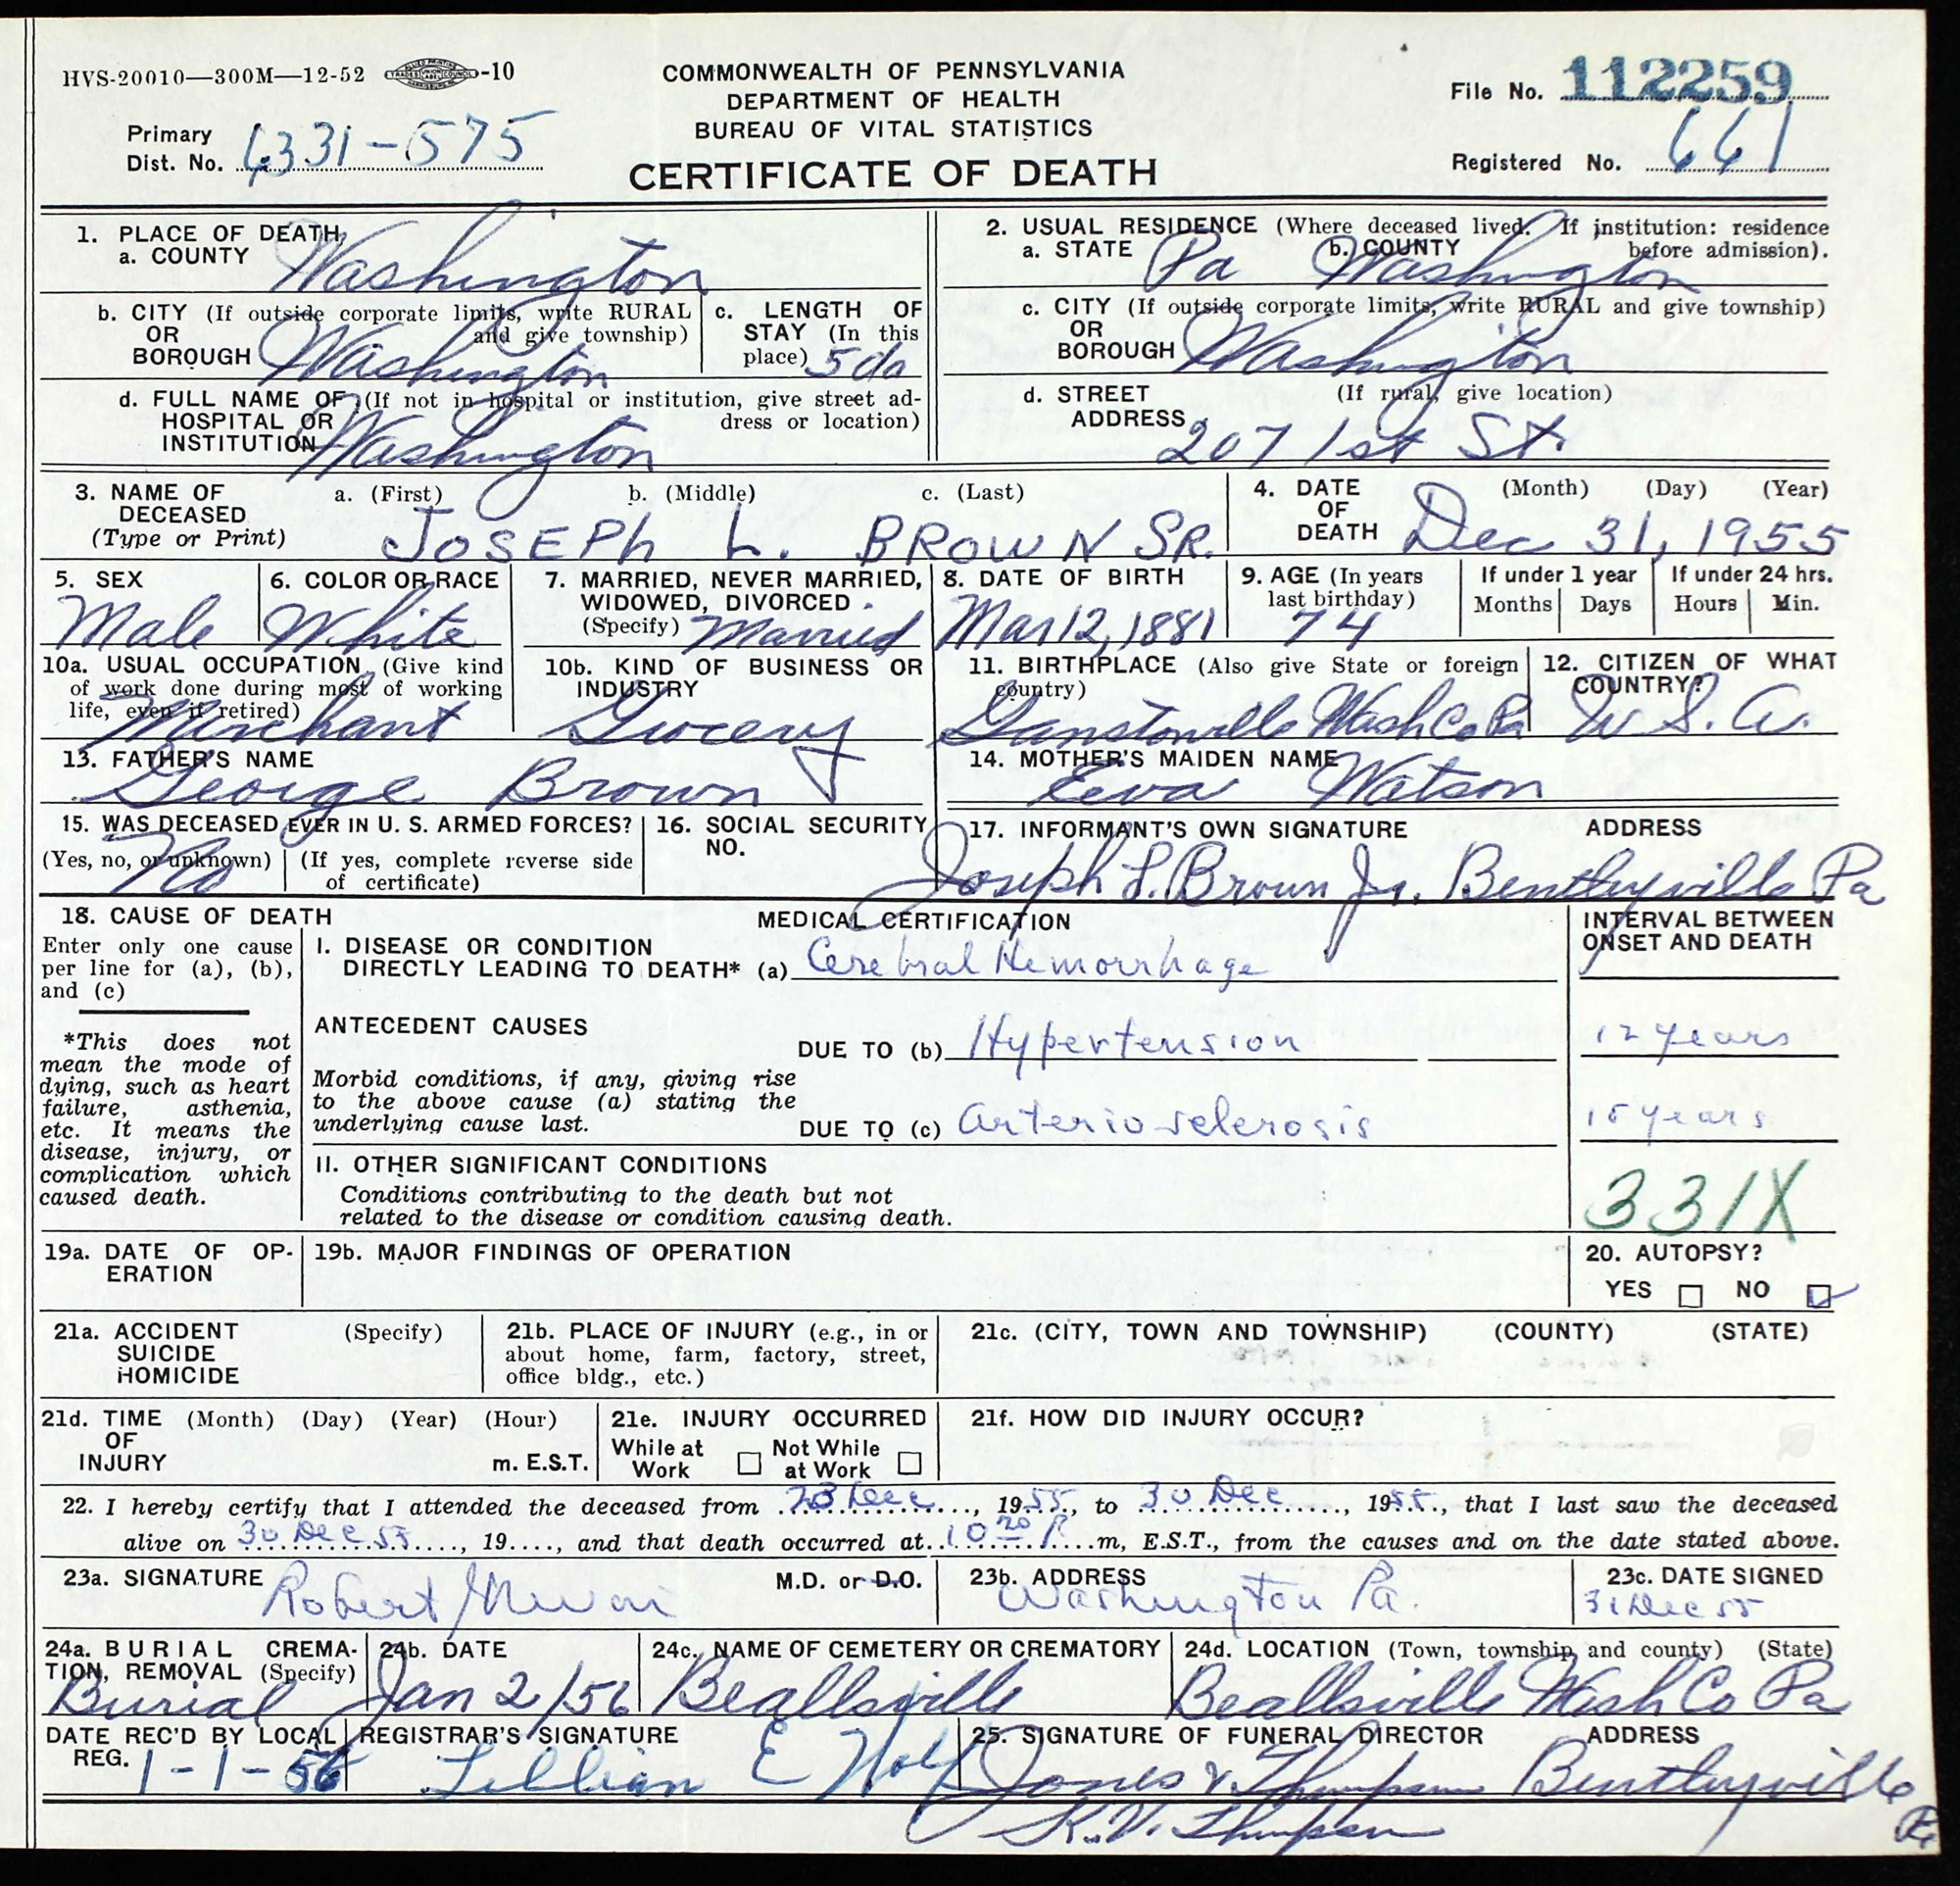 HVS-20010—300M—12-52 -10
COMMONWEALTH OF PENNSYLVANIA
DEPARTMENT OF HEALTH
BUREAU OF VITAL STATISTICS
CERTIFICATE OF DEATH
File No. 112259
Primary
Dist. No. 6331-575
Registered No. 661
1. PLACE OF DEATH
a. COUNTY Washington
b. CITY (If outside corporate limits, write RURAL
OR and give township)
BOROUGH Washington
c. LENGTH OF
STAY (In this
place) 5 da
d. FULL NAME OF (If not in hospital or institution, give street ad-
HOSPITAL OR dress or location)
INSTITUTION Washington
2. USUAL RESIDENCE (Where deceased lived. If institution: residence
a. STATE Pa b. COUNTY Washington before admission).
c. CITY (If outside corporate limits, write RURAL and give township)
OR
BOROUGH Washington
d. STREET (If rural, give location)
ADDRESS 207 1st St.
3. NAME OF a. (First) b. (Middle) c. (Last)
DECEASED
(Type or Print) JOSEPH L. BROWN SR.
4. DATE (Month) (Day) (Year)
OF
DEATH Dec 31, 1955
5. SEX
Male
6. COLOR OR RACE
White
7. MARRIED, NEVER MARRIED,
WIDOWED, DIVORCED
(Specify) Married
8. DATE OF BIRTH
Mar 12, 1881
9. AGE (In years
last birthday)
74
If under 1 year
Months Days
If under 24 hrs.
Hours Min.
10a. USUAL OCCUPATION (Give kind
of work done during most of working
life, even if retired)
Merchant
10b. KIND OF BUSINESS OR
INDUSTRY
Grocery
11. BIRTHPLACE (Also give State or foreign
country)
Wash Co Pa
12. CITIZEN OF WHAT
COUNTRY?
U.S.A.
13. FATHER'S NAME
George Brown
14. MOTHER'S MAIDEN NAME
Eva Watson
15. WAS DECEASED EVER IN U. S. ARMED FORCES?
(Yes, no, or unknown) (If yes, complete reverse side
No of certificate)
16. SOCIAL SECURITY
NO.
17. INFORMANT'S OWN SIGNATURE ADDRESS
Joseph L. Brown Jr. Bentleyville Pa
18. CAUSE OF DEATH
Enter only one cause
per line for (a), (b),
and (c)
*This does not
mean the mode of
dying, such as heart
failure, asthenia,
etc. It means the
disease, injury, or
complication which
caused death.
MEDICAL CERTIFICATION
I. DISEASE OR CONDITION
DIRECTLY LEADING TO DEATH* (a) Cerebral Hemorrhage
ANTECEDENT CAUSES
DUE TO (b) Hypertension
Morbid conditions, if any, giving rise
to the above cause (a) stating the
underlying cause last.
DUE TO (c) Arteriosclerosis
II. OTHER SIGNIFICANT CONDITIONS
Conditions contributing to the death but not
related to the disease or condition causing death.
INTERVAL BETWEEN
ONSET AND DEATH
12 years
15 years
331X
19a. DATE OF OP-
ERATION
19b. MAJOR FINDINGS OF OPERATION
20. AUTOPSY?
YES NO
21a. ACCIDENT (Specify)
SUICIDE
HOMICIDE
21b. PLACE OF INJURY (e.g., in or
about home, farm, factory, street,
office bldg., etc.)
21c. (CITY, TOWN AND TOWNSHIP) (COUNTY) (STATE)
21d. TIME (Month) (Day) (Year) (Hour)
OF
INJURY m. E.S.T.
21e. INJURY OCCURRED
While at Not While
Work at Work
21f. HOW DID INJURY OCCUR?
22. I hereby certify that I attended the deceased from Dec, 1955, to 30 Dec, 1955, that I last saw the deceased
alive on 30 Dec 55, 19...., and that death occurred at 10 20 P m, E.S.T., from the causes and on the date stated above.
23a. SIGNATURE Robert M.D. or D.O.
23b. ADDRESS
Washington Pa.
23c. DATE SIGNED
31 Dec 55
24a. BURIAL CREMA-
TION, REMOVAL (Specify)
Burial
24b. DATE
Jan 2/56
24c. NAME OF CEMETERY OR CREMATORY
Beallsville
24d. LOCATION (Town, township, and county) (State)
Beallsville Wash Co Pa
DATE REC'D BY LOCAL
REG. 1-1-56
REGISTRAR'S SIGNATURE
Lillian E Wolf
25. SIGNATURE OF FUNERAL DIRECTOR ADDRESS
Jones & Thompson Bentleyville Pa
K.V. Thompson